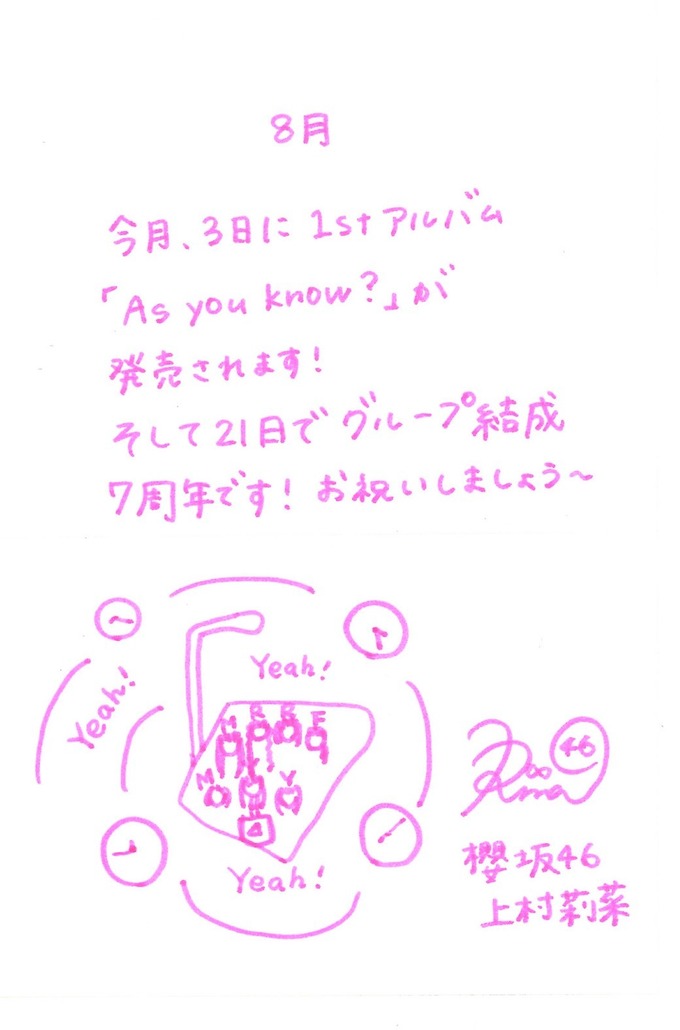 8月
今月、3日に1stアルバム
「As you know?」が
発売されます!
そして21日でグループ結成
7周年です! お祝いしましょう〜
Yeah!
Yeah!
H R R F
M K Y
Yeah!
Rina
46
櫻坂46
上村莉菜